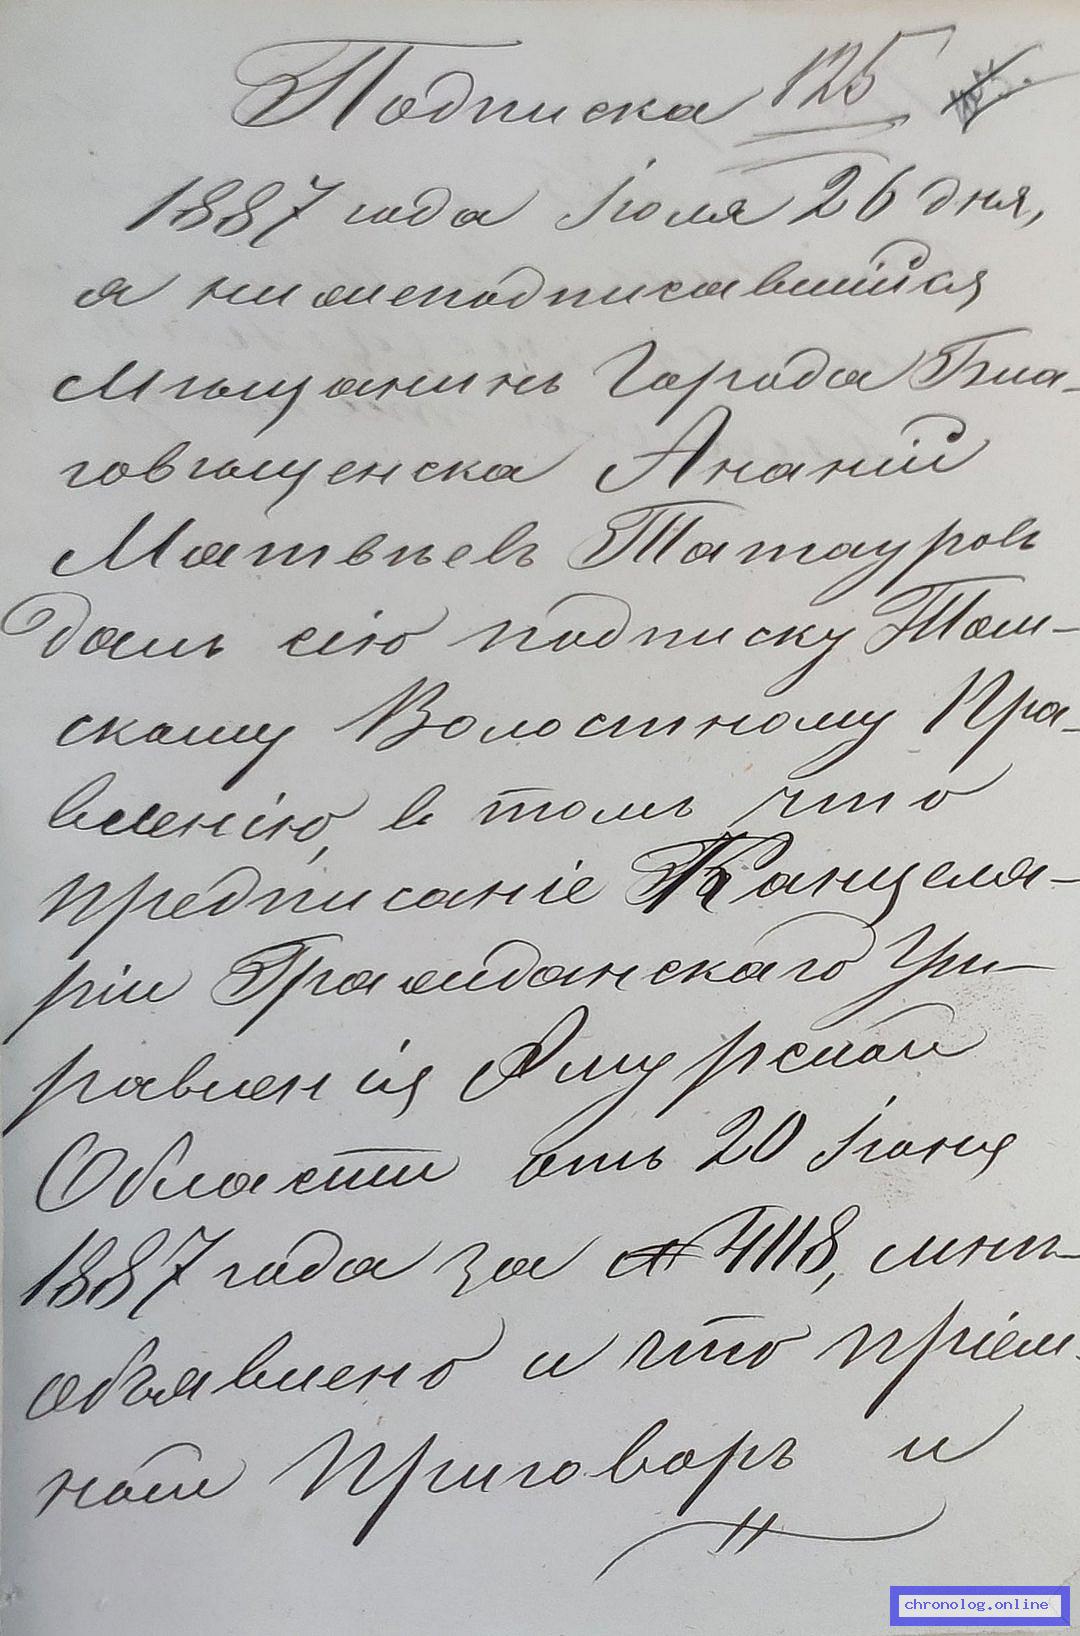 Подписка 125
1887 года Іюля 26 дня,
я нижеподписавшійся
Мѣщанинъ Города Бла-
говѣщенска Ананій
Матвѣевъ Татауровъ
далъ сію подписку Том-
скому Волостному Пра-
вленію, в томъ что
предписаніе Канцеля-
ріи Гражданскаго Уп-
равленія Амурской
Области отъ 20 Іюня
1887 года за № 4118, мнѣ
объявлено и что пріем-
ной Приговоръ и
chronolog.online